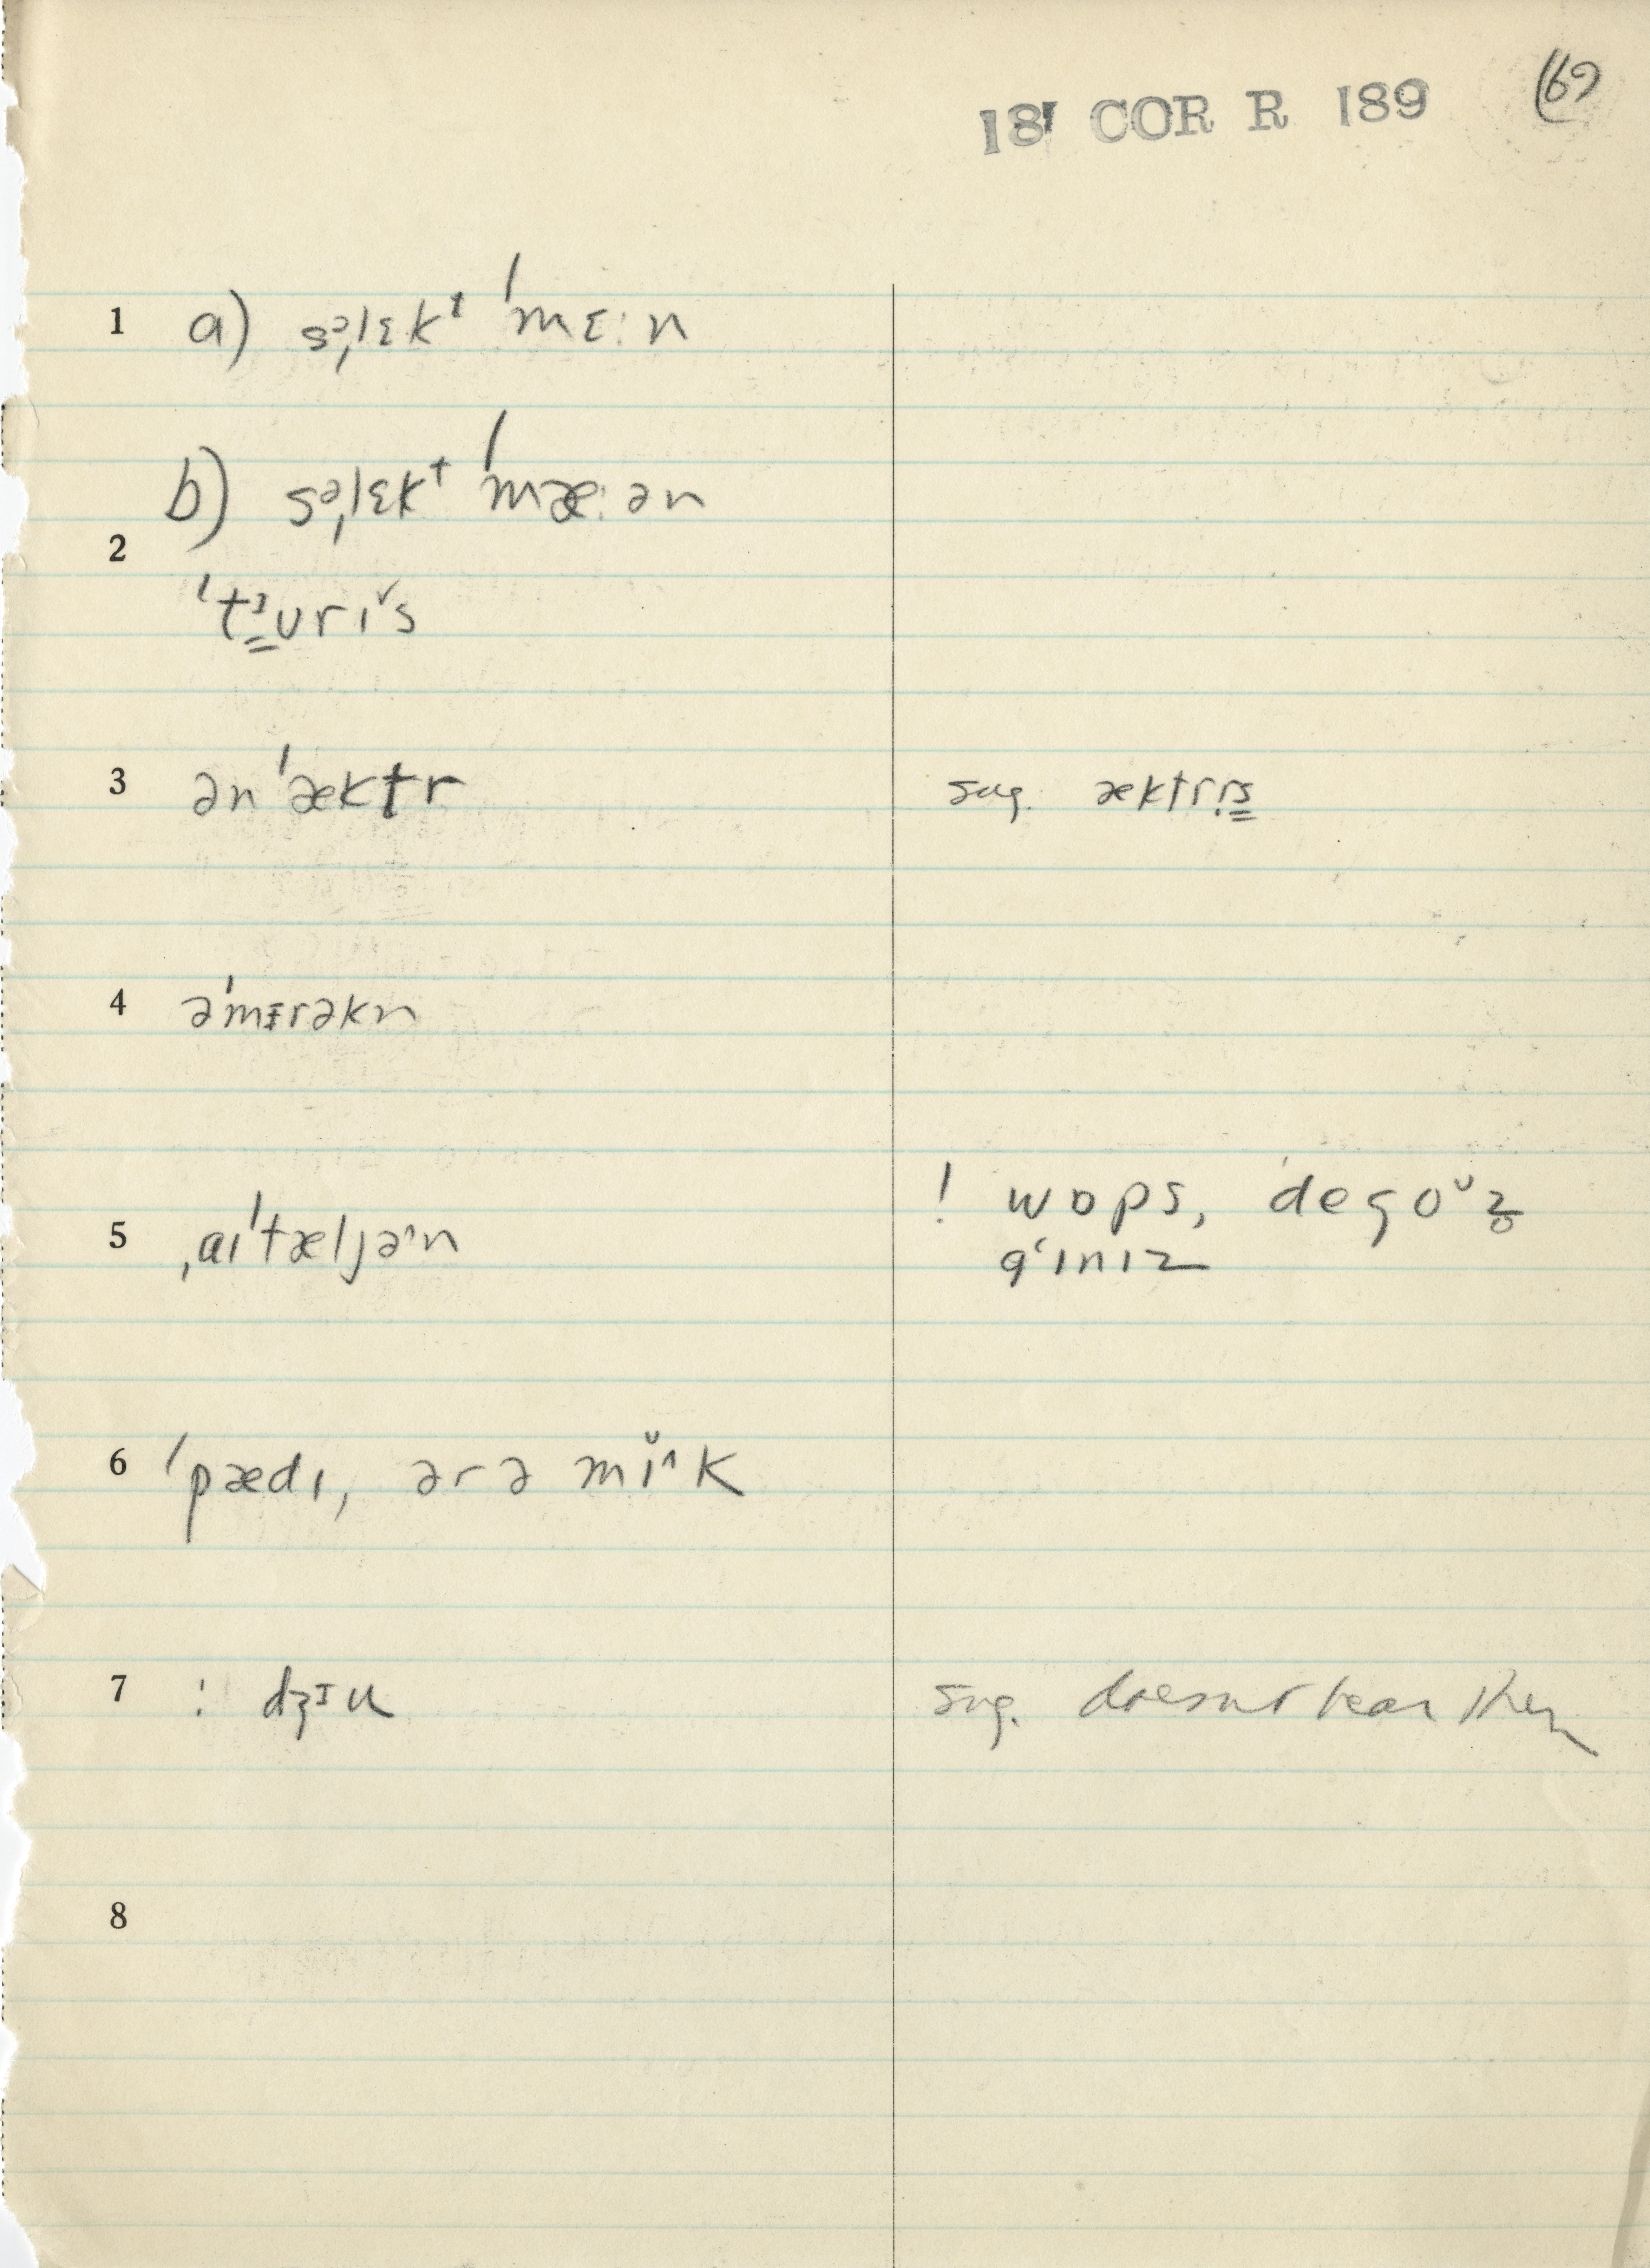 181 COR R 189 (69
1 a) səˌlɛkᵗ ˈmɛ:n
b) səˌlɛkᵗ ˈmæ:ən
2
ˈtᴲurɪˇs
3 ən ˈæktr sug. æktrɪs
4 əˈmɛrəkn
5 ˌaɪˈtæljə^n ! wɒps, ˈdegoᵛz̥
gˈɪnɪz
6 ˈpædɪ, ərə mɪˇ^k
7 : dʒɪu sug. doesnt hear them
8